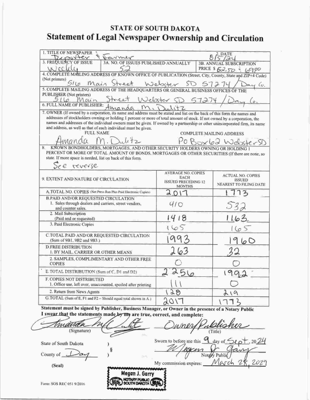 STATE OF SOUTH DAKOTA
Statement of Legal Newspaper Ownership and Circulation
1. TITLE OF NEWSPAPER
Reporter & Farmer
2. DATE
1. FREQUENCY OF ISSUE
Weekly
3A. NO. OF ISSUES PUBLISHED ANNUALLY
52
3B. ANNUAL SUBSCRIPTION PRICE
4. COMPLETE MAILING ADDRESS OF KNOWN OFFICE OF PUBLICATION (Street, City, County, State and ZIP+4 Code) (Not printers)
516 Main Street Webster SD 57274 / Day Co.
5. COMPLETE MAILING ADDRESS OF THE HEADQUARTERS OR GENERAL BUSINESS OFFICES OF THE PUBLISHER (Not printer)
516 Main Street Webster SD 57274 / Day Co.
6. FULL NAME OF PUBLISHER: Amanda M. Dulitz
7. OWNER (If owned by a corporation, its name and address must be stated and also on the back of this form the names and addresses of stockholders owning or holding 1 percent or more of total amount of stock. If not owned by a corporation, the names and addresses of the individual owners must be given. If owned by a partnership or other unincorporated firm, its name and address, as well as that of each individual must be given.
FULL NAME COMPLETE MAILING ADDRESS
Amanda M. Dulitz PO Box 62 Webster SD
8. KNOWN BONDHOLDERS, MORTGAGEES, AND OTHER SECURITY HOLDERS OWNING OR HOLDING 1 PERCENT OR MORE OF TOTAL AMOUNT OF BONDS, MORTGAGES OR OTHER SECURITIES (If there are none, so state. If more space is needed, list on back of this form.
See reverse
9. EXTENT AND NATURE OF CIRCULATION
AVERAGE NO. COPIES EACH ISSUED PRECEDING 12 MONTHS
ACTUAL NO. COPIES ISSUED NEAREST TO FILING DATE
A. TOTAL NO. COPIES 2017 1773
B. PAID AND/OR REQUESTED CIRCULATION
1. Sales through dealers and carriers, street vendors, and counter sales. 410 532
2. Mail Subscription (Paid and or requested) 1418 1163
3. Paid Electronic Copies 165 165
C. TOTAL PAID AND/OR REQUESTED CIRCULATION (Sum of 9B1, 9B2 and 9B3.) 1993 1960
D. FREE DISTRIBUTION
1. BY MAIL, CARRIER OR OTHER MEANS 263 32
2. SAMPLES, COMPLIMENTARY AND OTHER FREE COPIES 0 0
E. TOTAL DISTRIBUTION (Sum of C, D1 and D2) 2256 1992
F. COPIES NOT DISTRIBUTED
1. Office use, left over, unaccounted, spoiled after printing 111 0
2. Return from News Agents 128 219
G. TOTAL (Sum of E, F1 and F2 - Should equal total shown in A.) 2017 1773
Statement must be signed by Publisher, Business Manager, or Owner in the presence of a Notary Public
I swear that the statements made by me are true, correct, and complete:
Owner/Publisher
(Signature) (Title)
State of South Dakota )
County of Day )
Sworn to before me this 9 day of Sept. 20 24
Notary Public
(Seal)
My commission expires:
Megan J. Garry
NOTARY PUBLIC
SOUTH DAKOTA